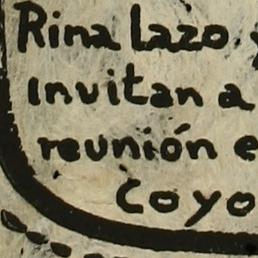 Rina Lazo y
invitan a
reunión e
Coyo